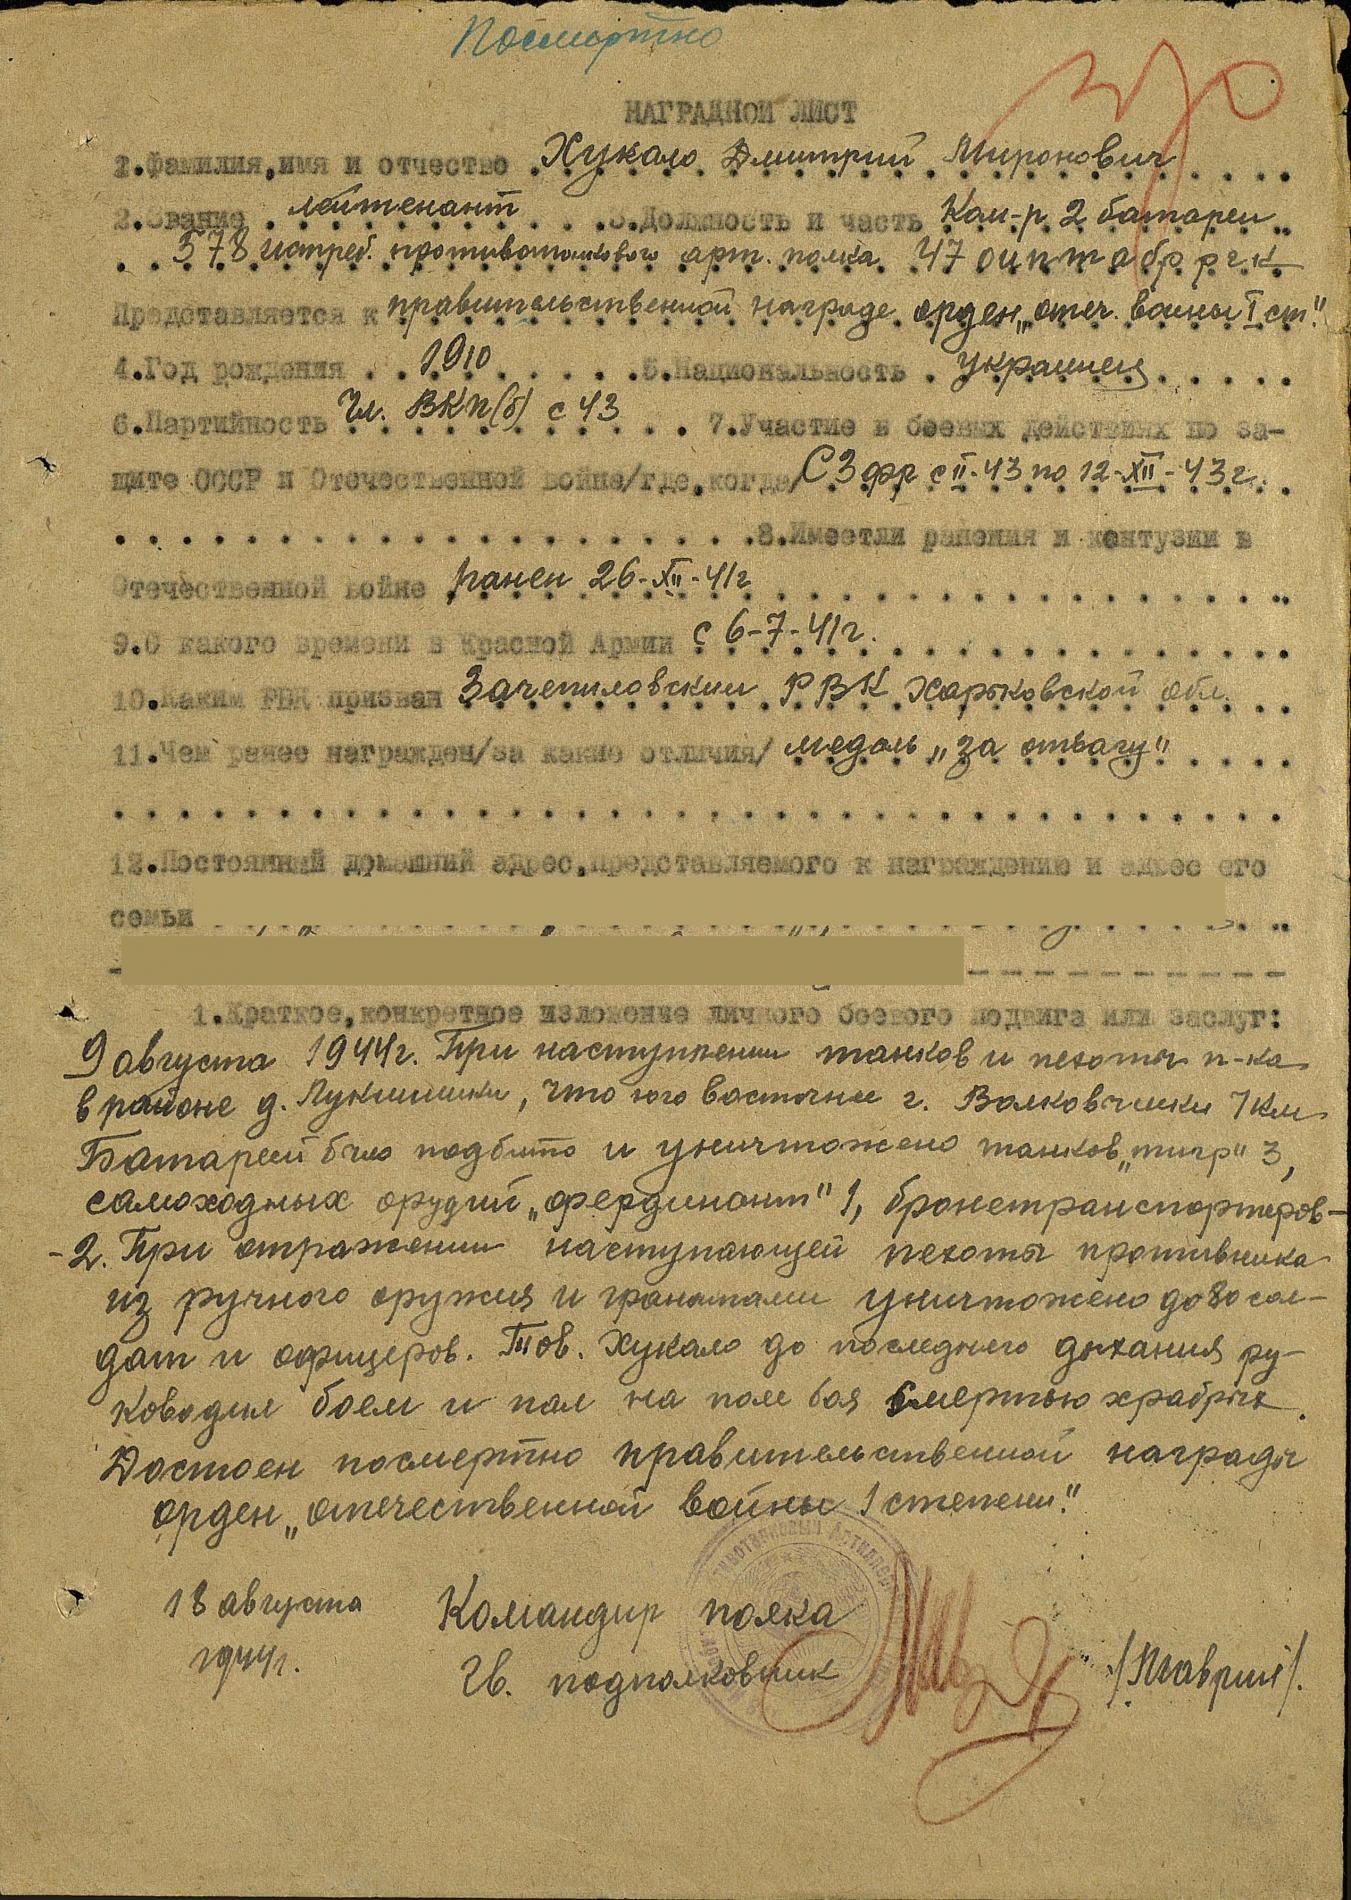 Посмертно
НАГРАДНОЙ ЛИСТ
1.Фамилия,имя и отчество Хукало Дмитрий Миронович
2.Звание лейтенант 3.Должность и часть Ком-р 2 батареи
578 истреб. противотанкового арт. полка 47 оиптабр ргк
Представляется к правительственной награде орден „отеч. войны I ст."
4.Год рождения 1910 5.Национальность украинец
6.Партийность Чл. ВКП(б) с 43 7.Участие в боевых действиях по за-
щите СССР и Отечественной войне/где,когда/ СЗ фр с II-43 по 12-XII-43г.
8.Имеетли ранения и контузии в
Отечественной войне ранен 26-XII-41г
9.С какого времени в Красной Армии с 6-7-41г.
10.Каким РВК призван Зачепиловский РВК Харьковской обл.
11.Чем ранее награжден/за какие отличия/ медаль „за отвагу"
12.Постоянный домашний адрес,представляемого к награждению и адрес его
семьи
1.Краткое,конкретное изложение личного боевого подвига или заслуг:
9 августа 1944г. При наступлении танков и пехоты п-ка
в районе д. Лукшишки, что юго восточнее г. Волковышки 7км
Батареей было подбито и уничтожено танков „тигр" 3,
самоходных орудий „фердинант" 1, бронетранспортеров-
-2. При отражении наступающей пехоты противника
из ручного оружия и гранатами уничтожено до 80 сол-
дат и офицеров. Тов. Хукало до последнего дыхания ру-
ководил боем и пал на поле боя смертью храбрых.
Достоен посмертно правительственной награды
орден „отечественной войны 1 степени."
18 августа Командир полка
1944г. Гв. подполковник /Мавриш/.